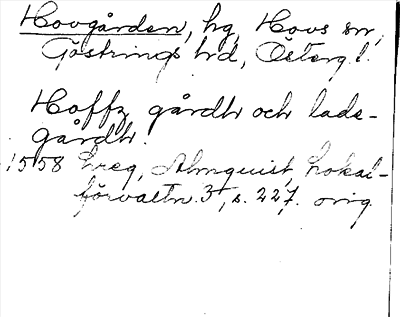 Hovgården, hg, Hovs sn,
Göstrings hd, Österg.l.
Hoffz gårdh och lade-
gårdh.
1558 hreg, Almquist, Lokal-
förvaltn. 3, s. 227. orig.